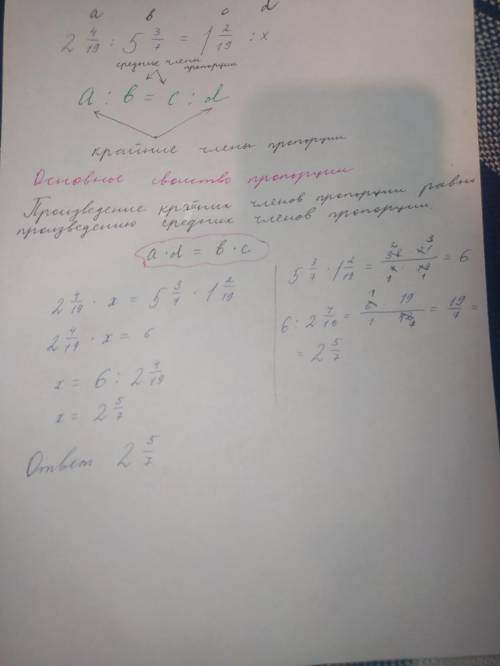 а в с d
2 4/19 : 5 3/7 = 1 2/19 : x
средние члены пропорции
a : b = c : d
крайние члены пропорции
Основное свойство пропорции
Произведение крайних членов пропорции равно
произведению средних членов пропорции.
a · d = b · c
2 4/19 · x = 5 3/7 · 1 2/19
2 4/19 · x = 6
x = 6 : 2 4/19
x = 2 5/7
Ответ 2 5/7
5 3/7 · 1 2/19 = 38 · 21 / 7 · 19 = 6
6 : 2 4/19 = 6 · 19 / 42 = 19/7 =
= 2 5/7